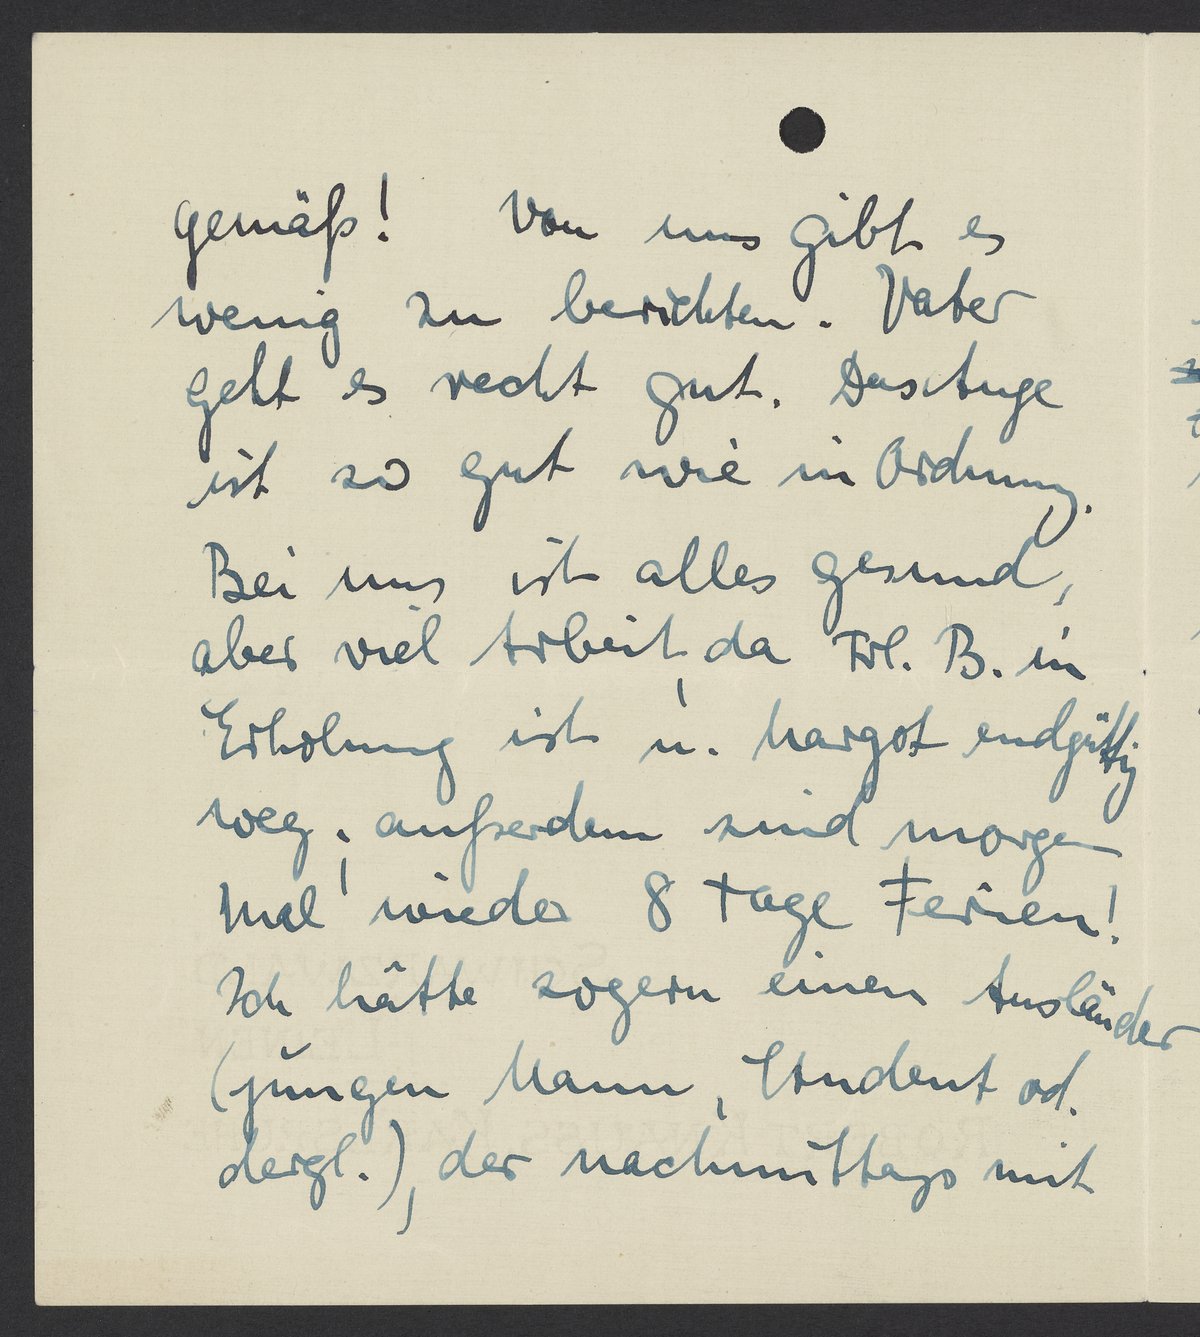 gemäß! Von uns gibt es
wenig zu berichten. Vater
geht es recht gut. Das Auge
ist so gut wie in Ordnung.
Bei uns ist alles gesund,
aber viel Arbeit, da Frl. B. in
Erholung ist u. Margot endgültig
weg, außerdem sind morgen
mal wieder 8 Tage Ferien!
Ich hätte sogern einen Ausländer
(jungen Mann, Student od.
dergl.), der nachmittags mit